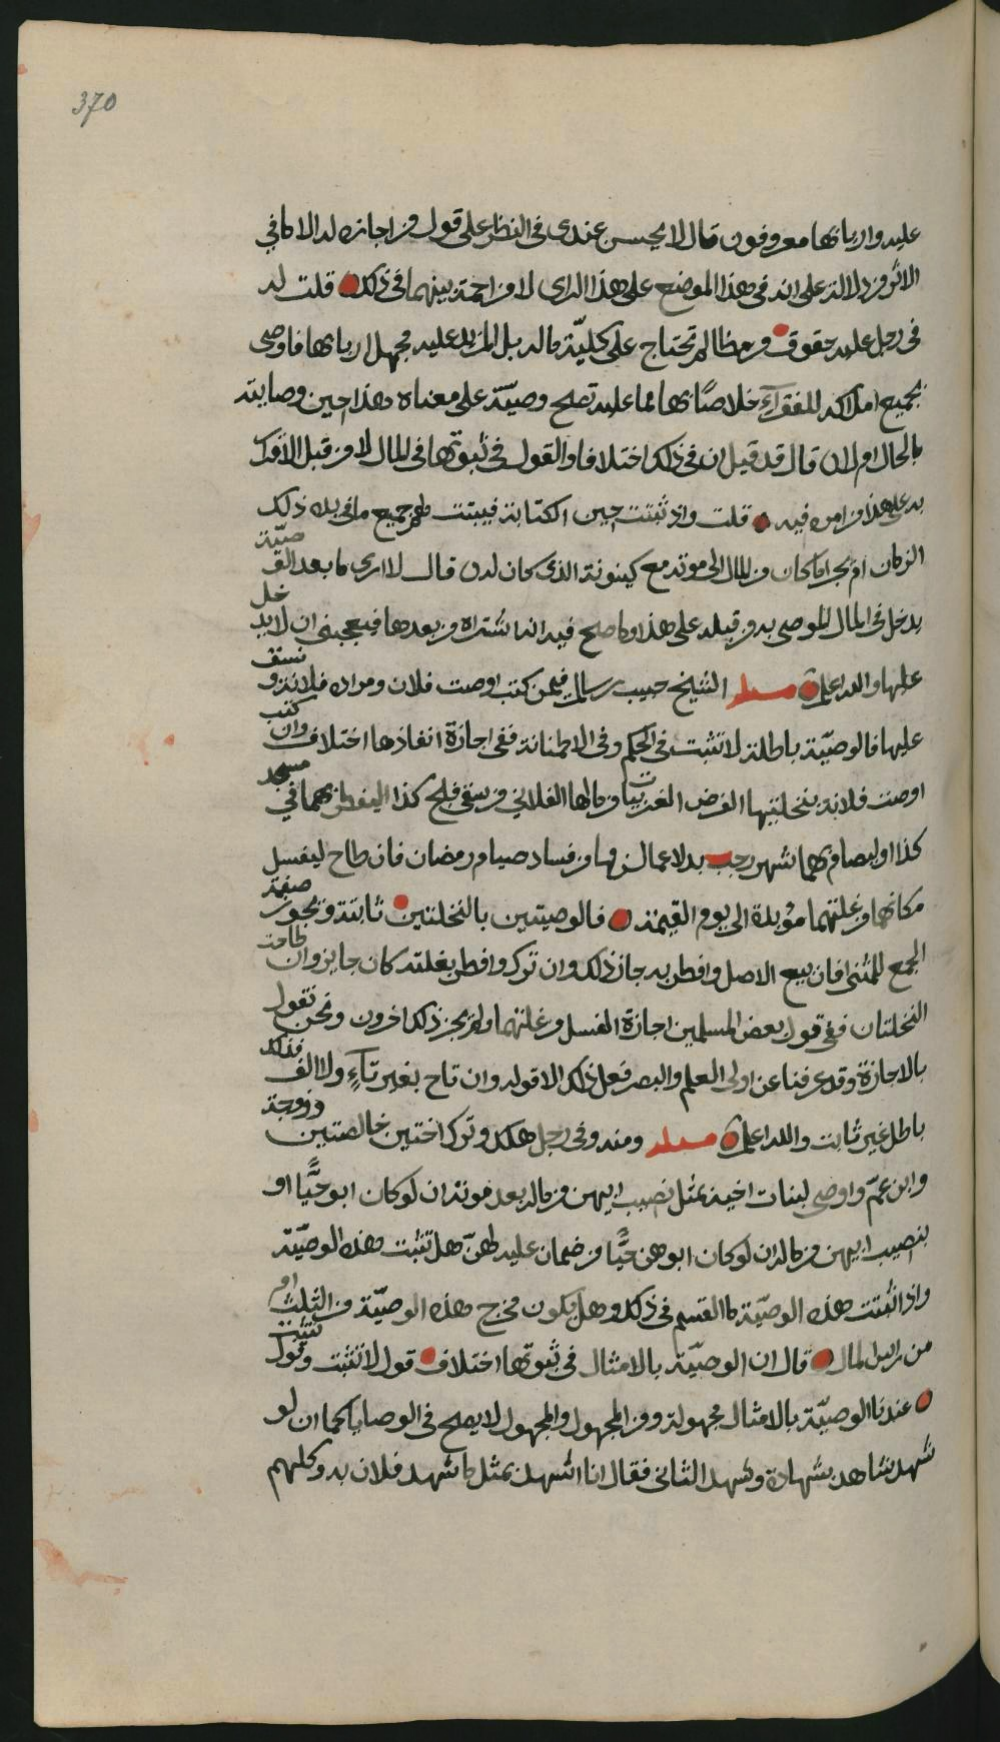 370
عليه واربابها معروفون قال لا يحسن عندى فى النظر على قول من اجازه له الا ما في
الاثر من دلالة على انه فى هذا الموضع على هذا الراى لا مزاحمة بينهما فى ذلك قلت له
فى رجل عليه حقوق ومظالم تحتاج على كليّة ماله بل المزيد عليه مجهل اربابها فاوصى
بجميع املاكه للفقرآء خلاصًا بها مما عليه تصلح وصيّته على معناه هذا حين وصايته
بالحال ام لا قال قد قيل ان فى ذلك اختلافا والقول فى ثبوتها فى المال لا من قبل الاقرار
به على هذا من امره فيه قلت واذ ثبتت حين الكتابة فيثبت لهم جميع ما فى يده ذلك
الزمان ام يجر ما كان من المال الى موته مع كينونة الذى كان لدى قال لا ارى ما بعد الوصيّة
يدخل فى المال الموصى به من قبله على هذا وما صلح فيه انما شتراه من بعدها فيعجبنى ان لا يدخل
عليها والله اعلم مسئلة الشيخ حبيب بن سالم فيمن كتب اوصت فلان ومراده فلانة و نسق
عليها فالوصيّة باطلة لا تثبت فى الحكم وفى الاطمئنانة ففى اجازة انفاذها اختلاف وان كتب
اوصت فلانة بنخلتيها الفرض الغربيات من مالها الفلاني من سقي فلج كذا ليفطر بهما في مسجد
كذا اوليصام بهما شهر رجب بدلا عما لزمها من فساد صيام رمضان فان طاح ليفسل
مكانهما من غلتهما مؤبدة الى يوم القيمة فالوصيتين بالنخلتين ثابتة ويجوز صفة
الجمع للمثنى فان بيع الاصل وافطر به جاز ذلك وان ترك وافطر بغلته كان جايز وان طاحت
النخلتان ففى قول بعض المسلمين اجازة الفسل من غلتهما ولم يجز ذلك اخرون ونحن نقول
بالاجازة وقد عرفنا عن اولى العلم والبصر فعل ذلك الاقوله وان تاح بغير تآءٍ ولا الف فذلك
باطل غير ثابت والله اعلم مسئلة ومنه وفى رجل هلك وترك اختين خالصتين وزوجة
وابن عمّ واوصى لبنات اخيه بمثل نصيب ابيهن من ماله بعد موته ان لو كان ابو حيًّا او
بنصيب ابيهن من ماله ان لو كان ابوهن حيًّا من ضمان عليه لهنّ هل تثبت هذه الوصيّة
واذا ثبتت هذه الوصيّة ما القسم فى ذلك وهل يكون مخرج هذه الوصيّة من الثلث ام
من راس المال قال ان الوصيّة بالامثال فى ثبوتها اختلاف قول لا تثبت وقول تثبت
عندنا الوصيّة بالامثال مجهولة ومن المجهول والمجهول لا يصلح فى الوصايا كما ان لو
شهد شاهد بشهادة وشهد الثانى فقال انا اشهد بمثل ما شهد فلان به وكلهم